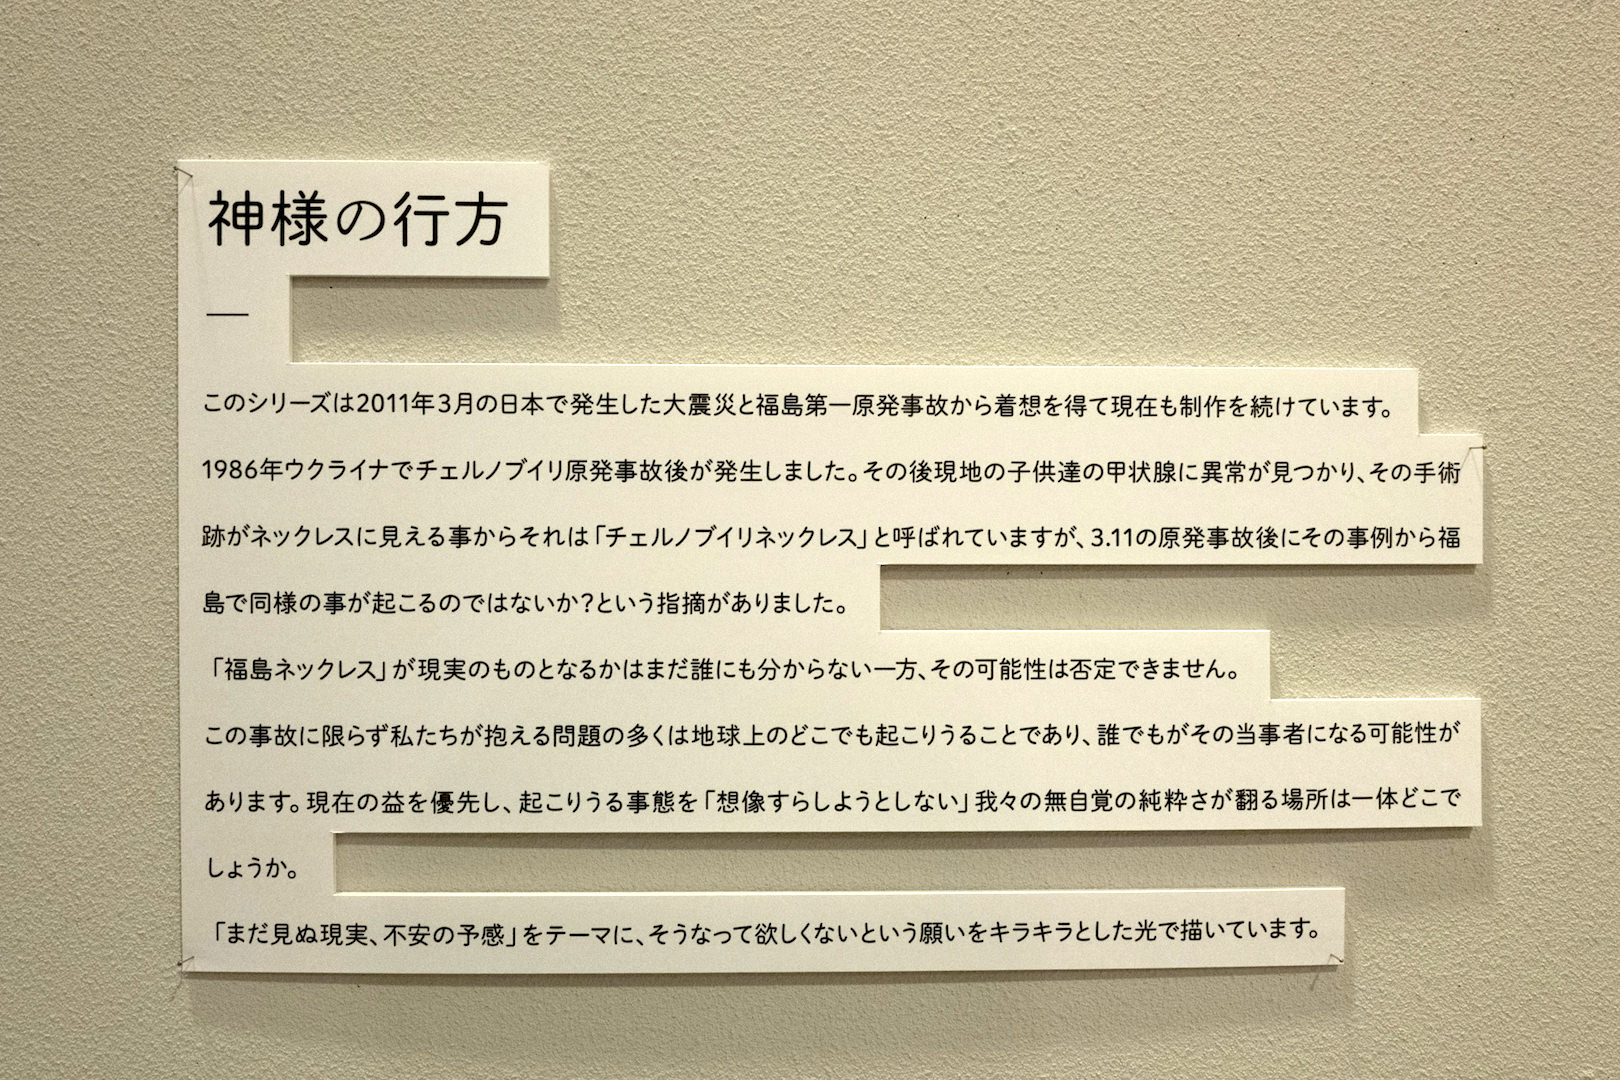 神様の行方
―
このシリーズは2011年3月の日本で発生した大震災と福島第一原発事故から着想を得て現在も制作を続けています。
1986年ウクライナでチェルノブイリ原発事故後が発生しました。その後現地の子供達の甲状腺に異常が見つかり、その手術
跡がネックレスに見える事からそれは「チェルノブイリネックレス」と呼ばれていますが、3.11の原発事故後にその事例から福
島で同様の事が起こるのではないか？という指摘がありました。
「福島ネックレス」が現実のものとなるかはまだ誰にも分からない一方、その可能性は否定できません。
この事故に限らず私たちが抱える問題の多くは地球上のどこでも起こりうることであり、誰でもがその当事者になる可能性が
あります。現在の益を優先し、起こりうる事態を「想像すらしようとしない」我々の無自覚の純粋さが翻る場所は一体どこで
しょうか。
「まだ見ぬ現実、不安の予感」をテーマに、そうなって欲しくないという願いをキラキラとした光で描いています。